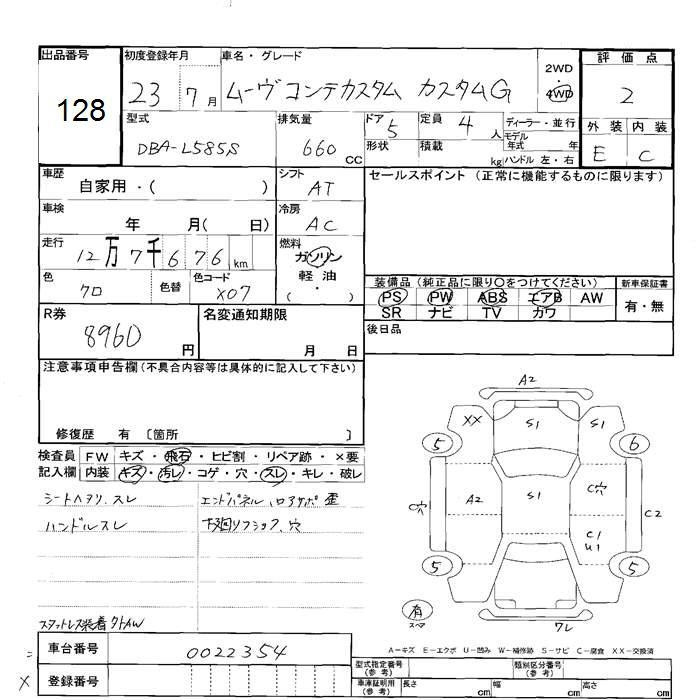 出品番号
128
初度登録年月
23年 7月
車名・グレード
ムーヴ コンテカスタム カスタムG
2WD
4WD
評価点
2
外装 内装
E C
型式
DBA-L585S
排気量
660 cc
ドア 5
定員 4 人
形状
積載 kg
ディーラー・並行
モデル年式 年
ハンドル 左・右
車歴
自家用・( )
シフト
AT
セールスポイント (正常に機能するものに限ります)
車検
年 月( 日)
冷房
AC
走行
12万7千676 km
燃料
ガソリン
軽油
( ・ )
色
クロ
色替
色コード
X07
装備品(純正品に限り○をつけてください)
PS PW ABS エアB AW
SR ナビ TV カワ
新車保証書
有・無
R券
8960 円
名変通知期限
月 日
後日品
注意事項申告欄(不具合内容等は具体的に記入して下さい)
修復歴 有 〔箇所 〕
検査員
記入欄
FW キズ・飛石・ヒビ割・リペア跡・×要
内装 キズ・汚レ・コゲ・穴・スレ・キレ・破レ
シートヘタリ、スレ
ハンドルスレ
スタットレス装着 夕トAW
車台番号
0022354
登録番号
A2
XX
S1
S1
5
6
C穴
A2
S1
C穴
C2
C1
U1
5
5
有
スペア
ワレ
A－キズ E－エクボ U－凹み W－補修跡 S－サビ C－腐食 XX－交換済
型式指定番号
(参考)
類別区分番号
(参考)
車庫証明用
(参考)
長さ cm
幅 cm
高さ cm